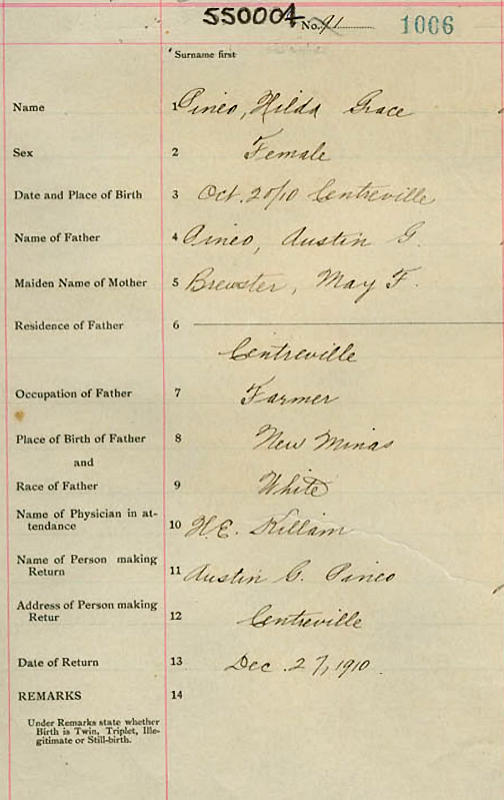 550004 No. 91 1006
Surname first
Name 1 Pineo, Hilda Grace
Sex 2 Female
Date and Place of Birth 3 Oct. 20/10 Centreville
Name of Father 4 Pineo, Austin G.
Maiden Name of Mother 5 Brewster, May F.
Residence of Father 6
Centreville
Occupation of Father 7 Farmer
Place of Birth of Father 8 New Minas
and
Race of Father 9 White
Name of Physician in at-
tendance 10 H.E. Killam
Name of Person making
Return 11 Austin C. Pineo
Address of Person making
Retur 12 Centreville
Date of Return 13 Dec. 27, 1910.
REMARKS 14
Under Remarks state whether
Birth is Twin, Triplet, Ille-
gitimate or Still-birth.